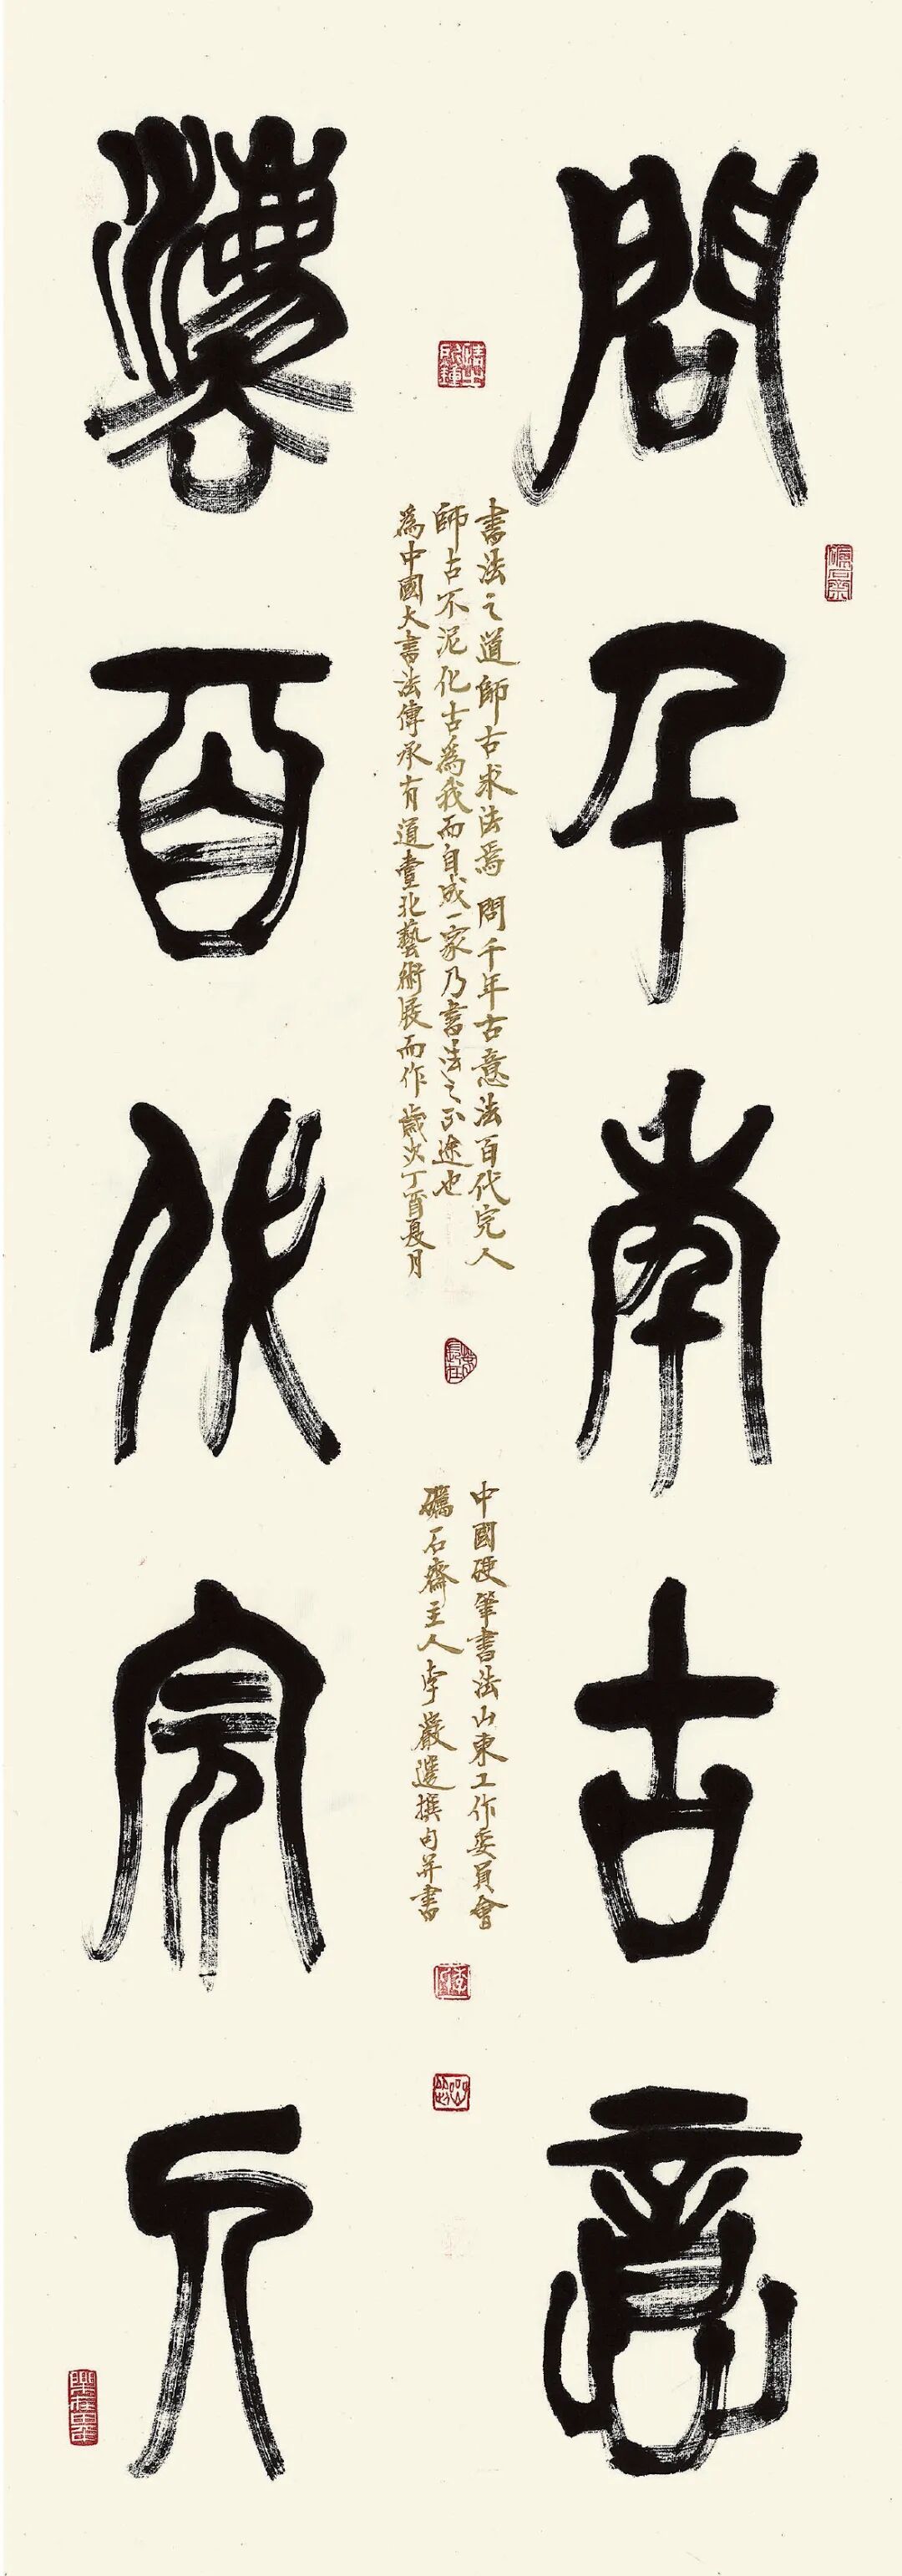 問千年古意
灋百代完人
書法之道師古求法焉 問千年古意法百代完人
師古不泥化古為我而自成一家乃書法之正途也
為中國大書法傳承有道臺北藝術展而作 歲次丁酉夏月
中國硬筆書法山東工作委員會
礪石齋主人李嚴選撰句并書